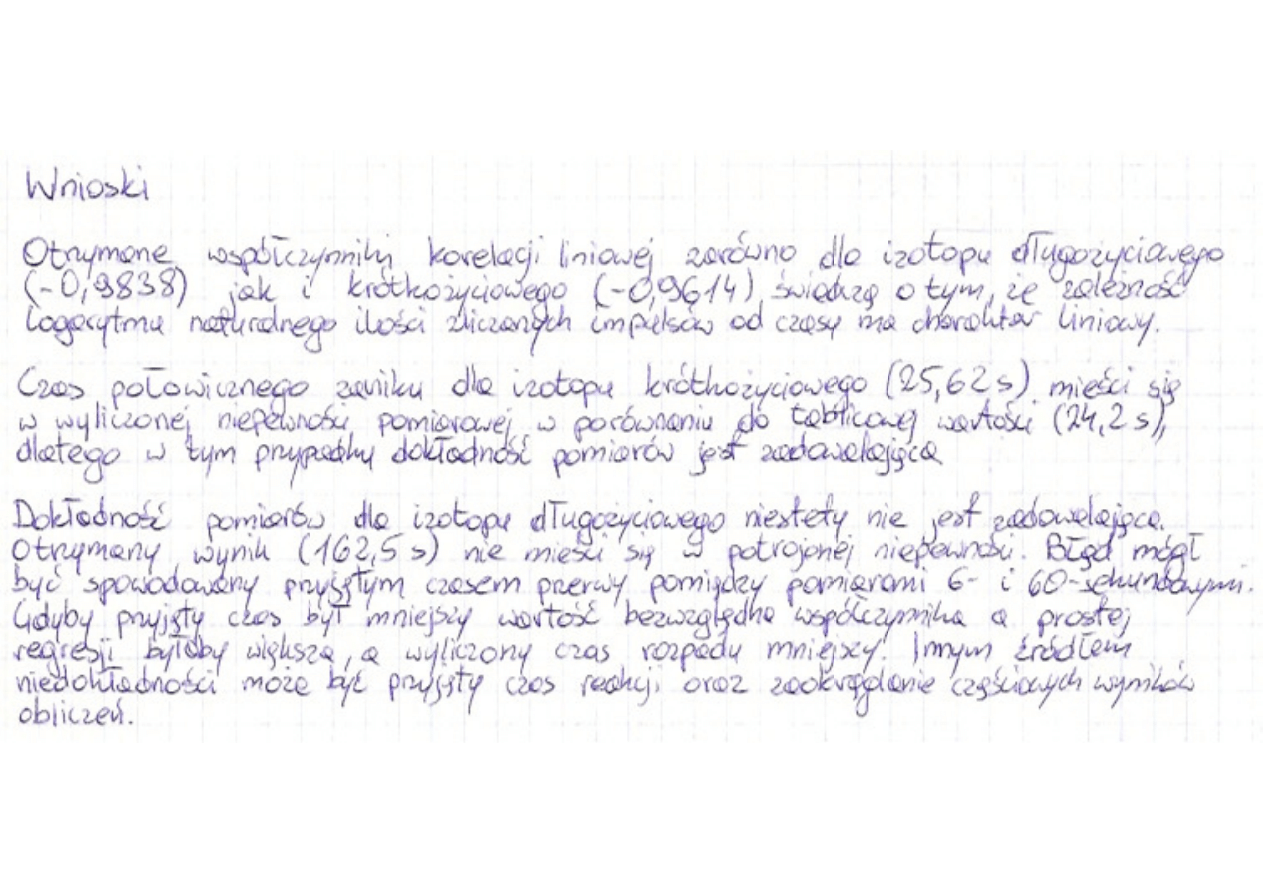 Wnioski
Otrzymane współczynniki korelacji liniowej zarówno dla izotopu długożyciowego
(-0,9838) jak i krótkożyciowego (-0,9614) świadczą o tym, że zależność
logarytmu naturalnego ilości zliczanych impulsów od czasu ma charakter liniowy.
Czas połowicznego zaniku dla izotopu krótkożyciowego (25,62 s) mieści się
w wyliczonej niepewności pomiarowej w porównaniu do tablicowej wartości (24,2 s),
dlatego w tym przypadku dokładność pomiarów jest zadowalająca
Dokładność pomiarów dla izotopu długożyciowego niestety nie jest zadowalająca.
Otrzymany wynik (162,5 s) nie mieści się w potrojonej niepewności. Błąd mógł
być spowodowany przyjętym czasem przerwy pomiędzy pomiarami 6- i 60-sekundowymi.
Gdyby przyjęty czas był mniejszy wartość bezwzględna współczynnika a prostej
regresji byłaby większa, a wyliczony czas rozpadu mniejszy. Innym źródłem
niedokładności może być przyjęty czas reakcji oraz zaokrąglanie częściowych wyników
obliczeń.